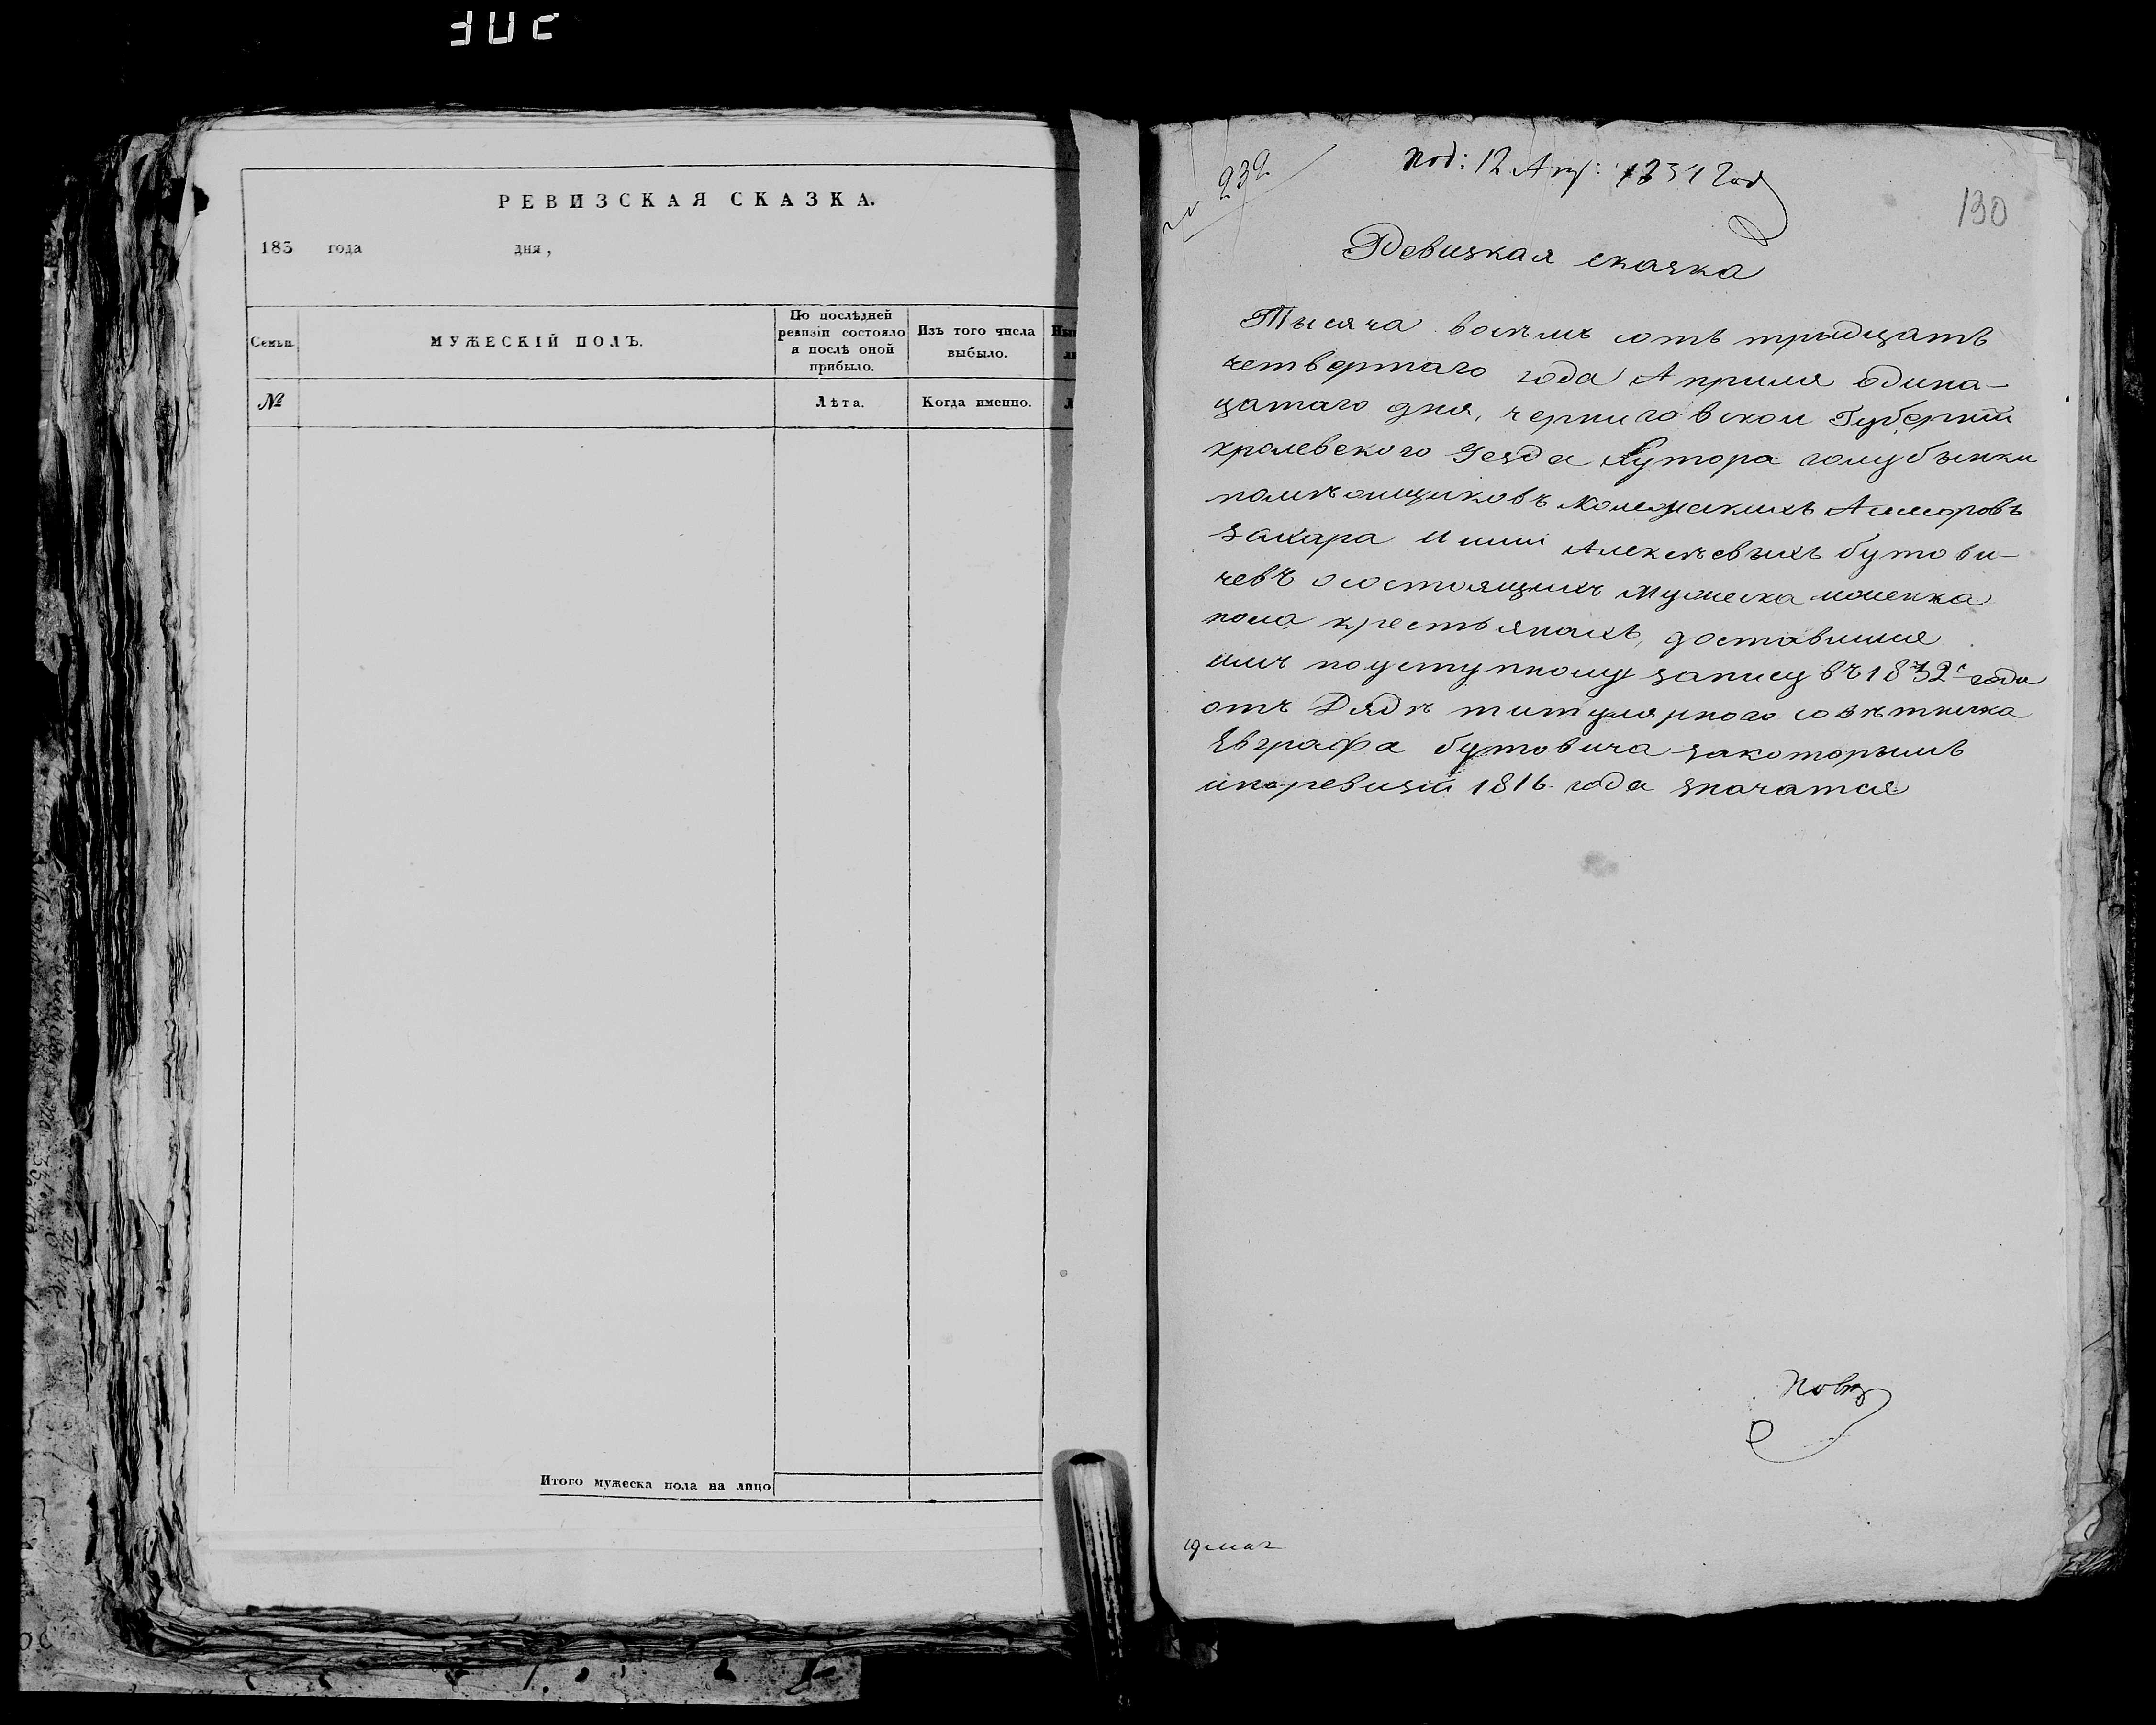 РЕВИЗСКАЯ СКАЗКА.
183 года дня,
Семьи.
МУЖЕСКІЙ ПОЛЪ.
По послѣдней
ревизіи состояло
и послѣ оной
прибыло.
Изъ того числа
выбыло.
№
Лѣта.
Когда именно.
Итого мужеска пола на лицо
№ 239
Под: 12 Апр: 1834 Год
130
Ревизкая сказка
Тысяча восѣмъ сотъ трыдцать
четвертаго года Априля одина-
цатаго дня, черниговской Губерніи
кролевского Уезда Хутора голубынки
помѣщиковъ Колежскихъ Асесоровъ
Захара и Алексѣевыхъ бутови-
чевъ осостоящихъ мужеска иженска
пола крестьянахъ, доставшися
имъ поуступному запису въ 1832 годи
отъ Дядѣ титулярного совѣтника
Евграфа бутовича закоторымъ
ипоревизіи 1816 года значатся